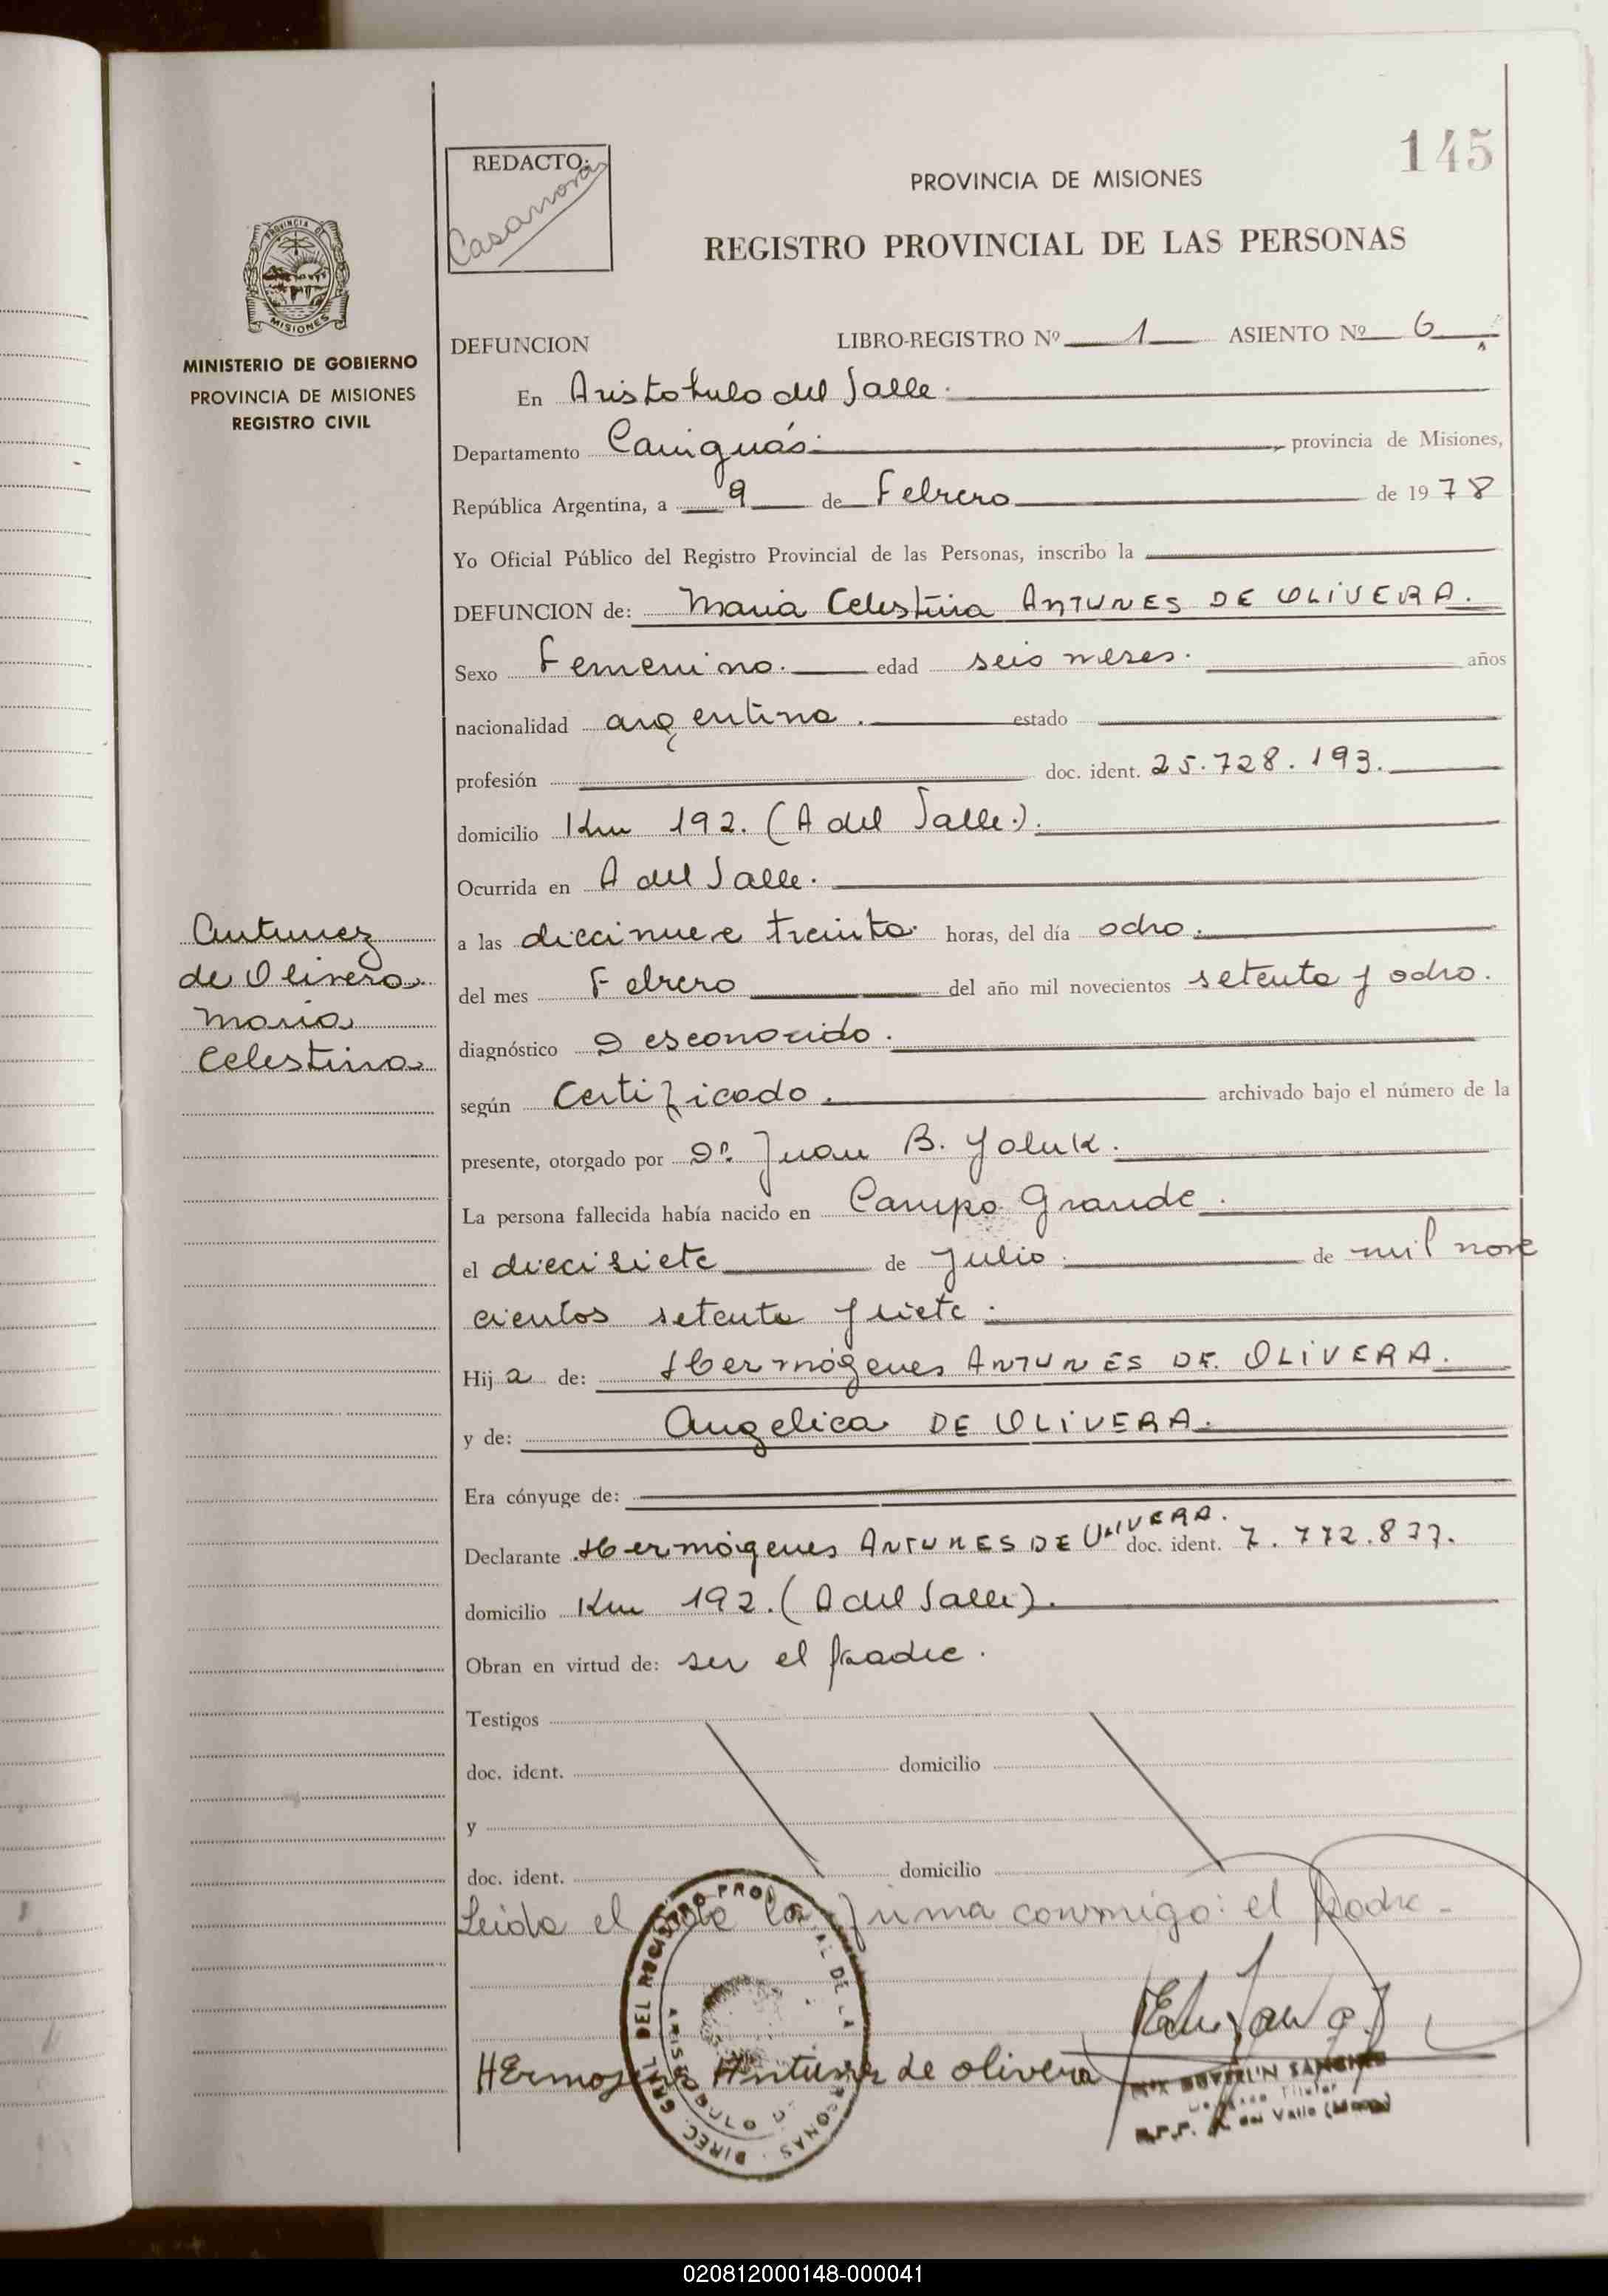 145
REDACTO:
Casanova
PROVINCIA DE MISIONES
REGISTRO PROVINCIAL DE LAS PERSONAS
PROVINCIA DE
MISIONES
MINISTERIO DE GOBIERNO
PROVINCIA DE MISIONES
REGISTRO CIVIL
DEFUNCION LIBRO-REGISTRO Nº 1 ASIENTO Nº 6
En Aristobulo del Valle.
Departamento Cainguás. provincia de Misiones,
República Argentina, a 9 de Febrero de 1978
Yo Oficial Público del Registro Provincial de las Personas, inscribo la
DEFUNCION de: Maria Celestina ANTUNES DE OLIVERA.
Sexo Femenino. edad seis meses. años
nacionalidad argentina. estado
profesión doc. ident. 25.728.193.
domicilio Km 192. (A del Valle.).
Ocurrida en A del Valle.
a las diecinueve treinta horas, del día ocho.
del mes Febrero del año mil novecientos setenta y ocho.
diagnóstico Desconocido.
según Certificado. archivado bajo el número de la
presente, otorgado por Dr. Juan B. Yoluk.
La persona fallecida había nacido en Campo Grande.
el diecisiete de Julio. de mil nove
cientos setenta y siete.
Hija de: Hermógenes ANTUNES DE OLIVERA.
y de: Angelica DE OLIVERA.
Era cónyuge de:
Declarante Hermógenes ANTUNES DE OLIVERA. doc. ident. 7.772.877.
domicilio Km 192. (A del Valle).
Obran en virtud de: ser el padre.
Testigos
doc. ident. domicilio
y
doc. ident. domicilio
Leida el acta la firma conmigo: el padre.
Antunez
de Olivera
Maria
Celestina
Hermogenes Antunes de olivera
DIREC. GRAL. DEL REGISTRO PROVINCIAL DE LAS PERSONAS
ARISTOBULO
SANCHEZ
Titular
del Valle
020812000148-000041